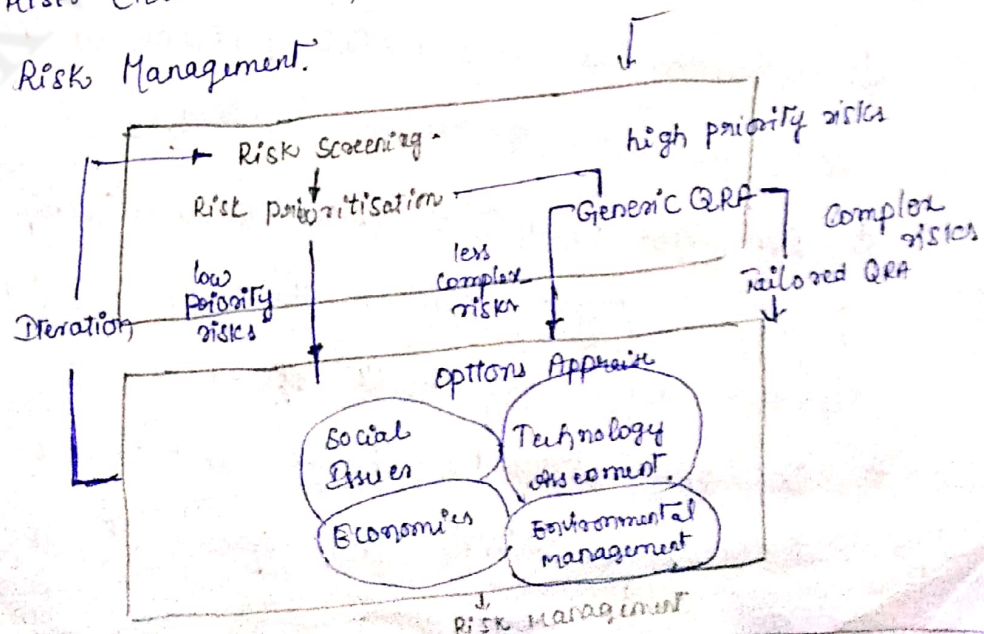 Risk Management.
Risk Screening.
high priority risks
Risk prioritisation
Generic QRA
Complex
risks
less
complex
risks
low
priority
risks
Tailored QRA
Iteration
Options Appraise
Social
Issues
Technology
Economics
Environmental
management
Risk Management